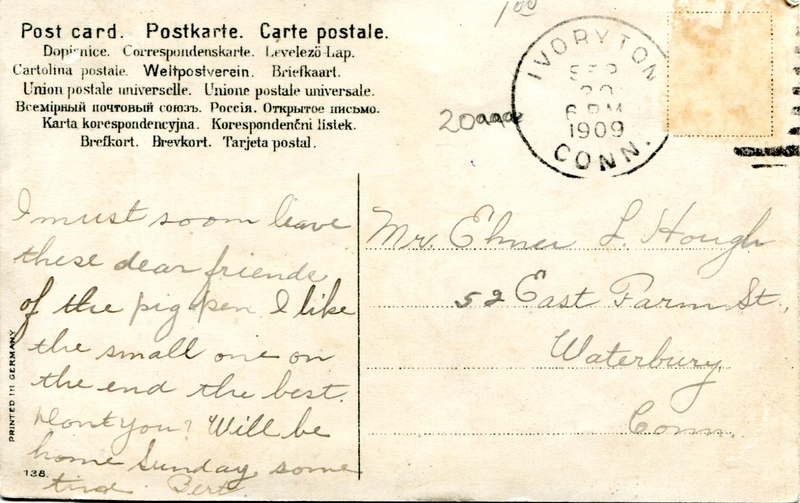 1.00
Post card. Postkarte. Carte postale.
Dopisnice. Correspondenskarte. Levelező-Lap.
Cartolina postale. Weltpostverein. Briefkaart.
Union postale universelle. Unione postale universale.
Всемірный почтовый союзъ. Россія. Открытое письмо.
Karta korespondencyjna. Korespondenční listek.
Brefkort. Brevkort. Tarjeta postal.
20
IVORYTON
SEP
20
6 PM
1909
CONN.
I must soon leave
these dear friends
of the pig pen. I like
the small one on
the end the best.
Dont you? Will be
home Sunday some
Bert.
Mr. Elmer L. Hough
52 East Farm St.,
Waterbury,
Conn.
PRINTED IN GERMANY
138.